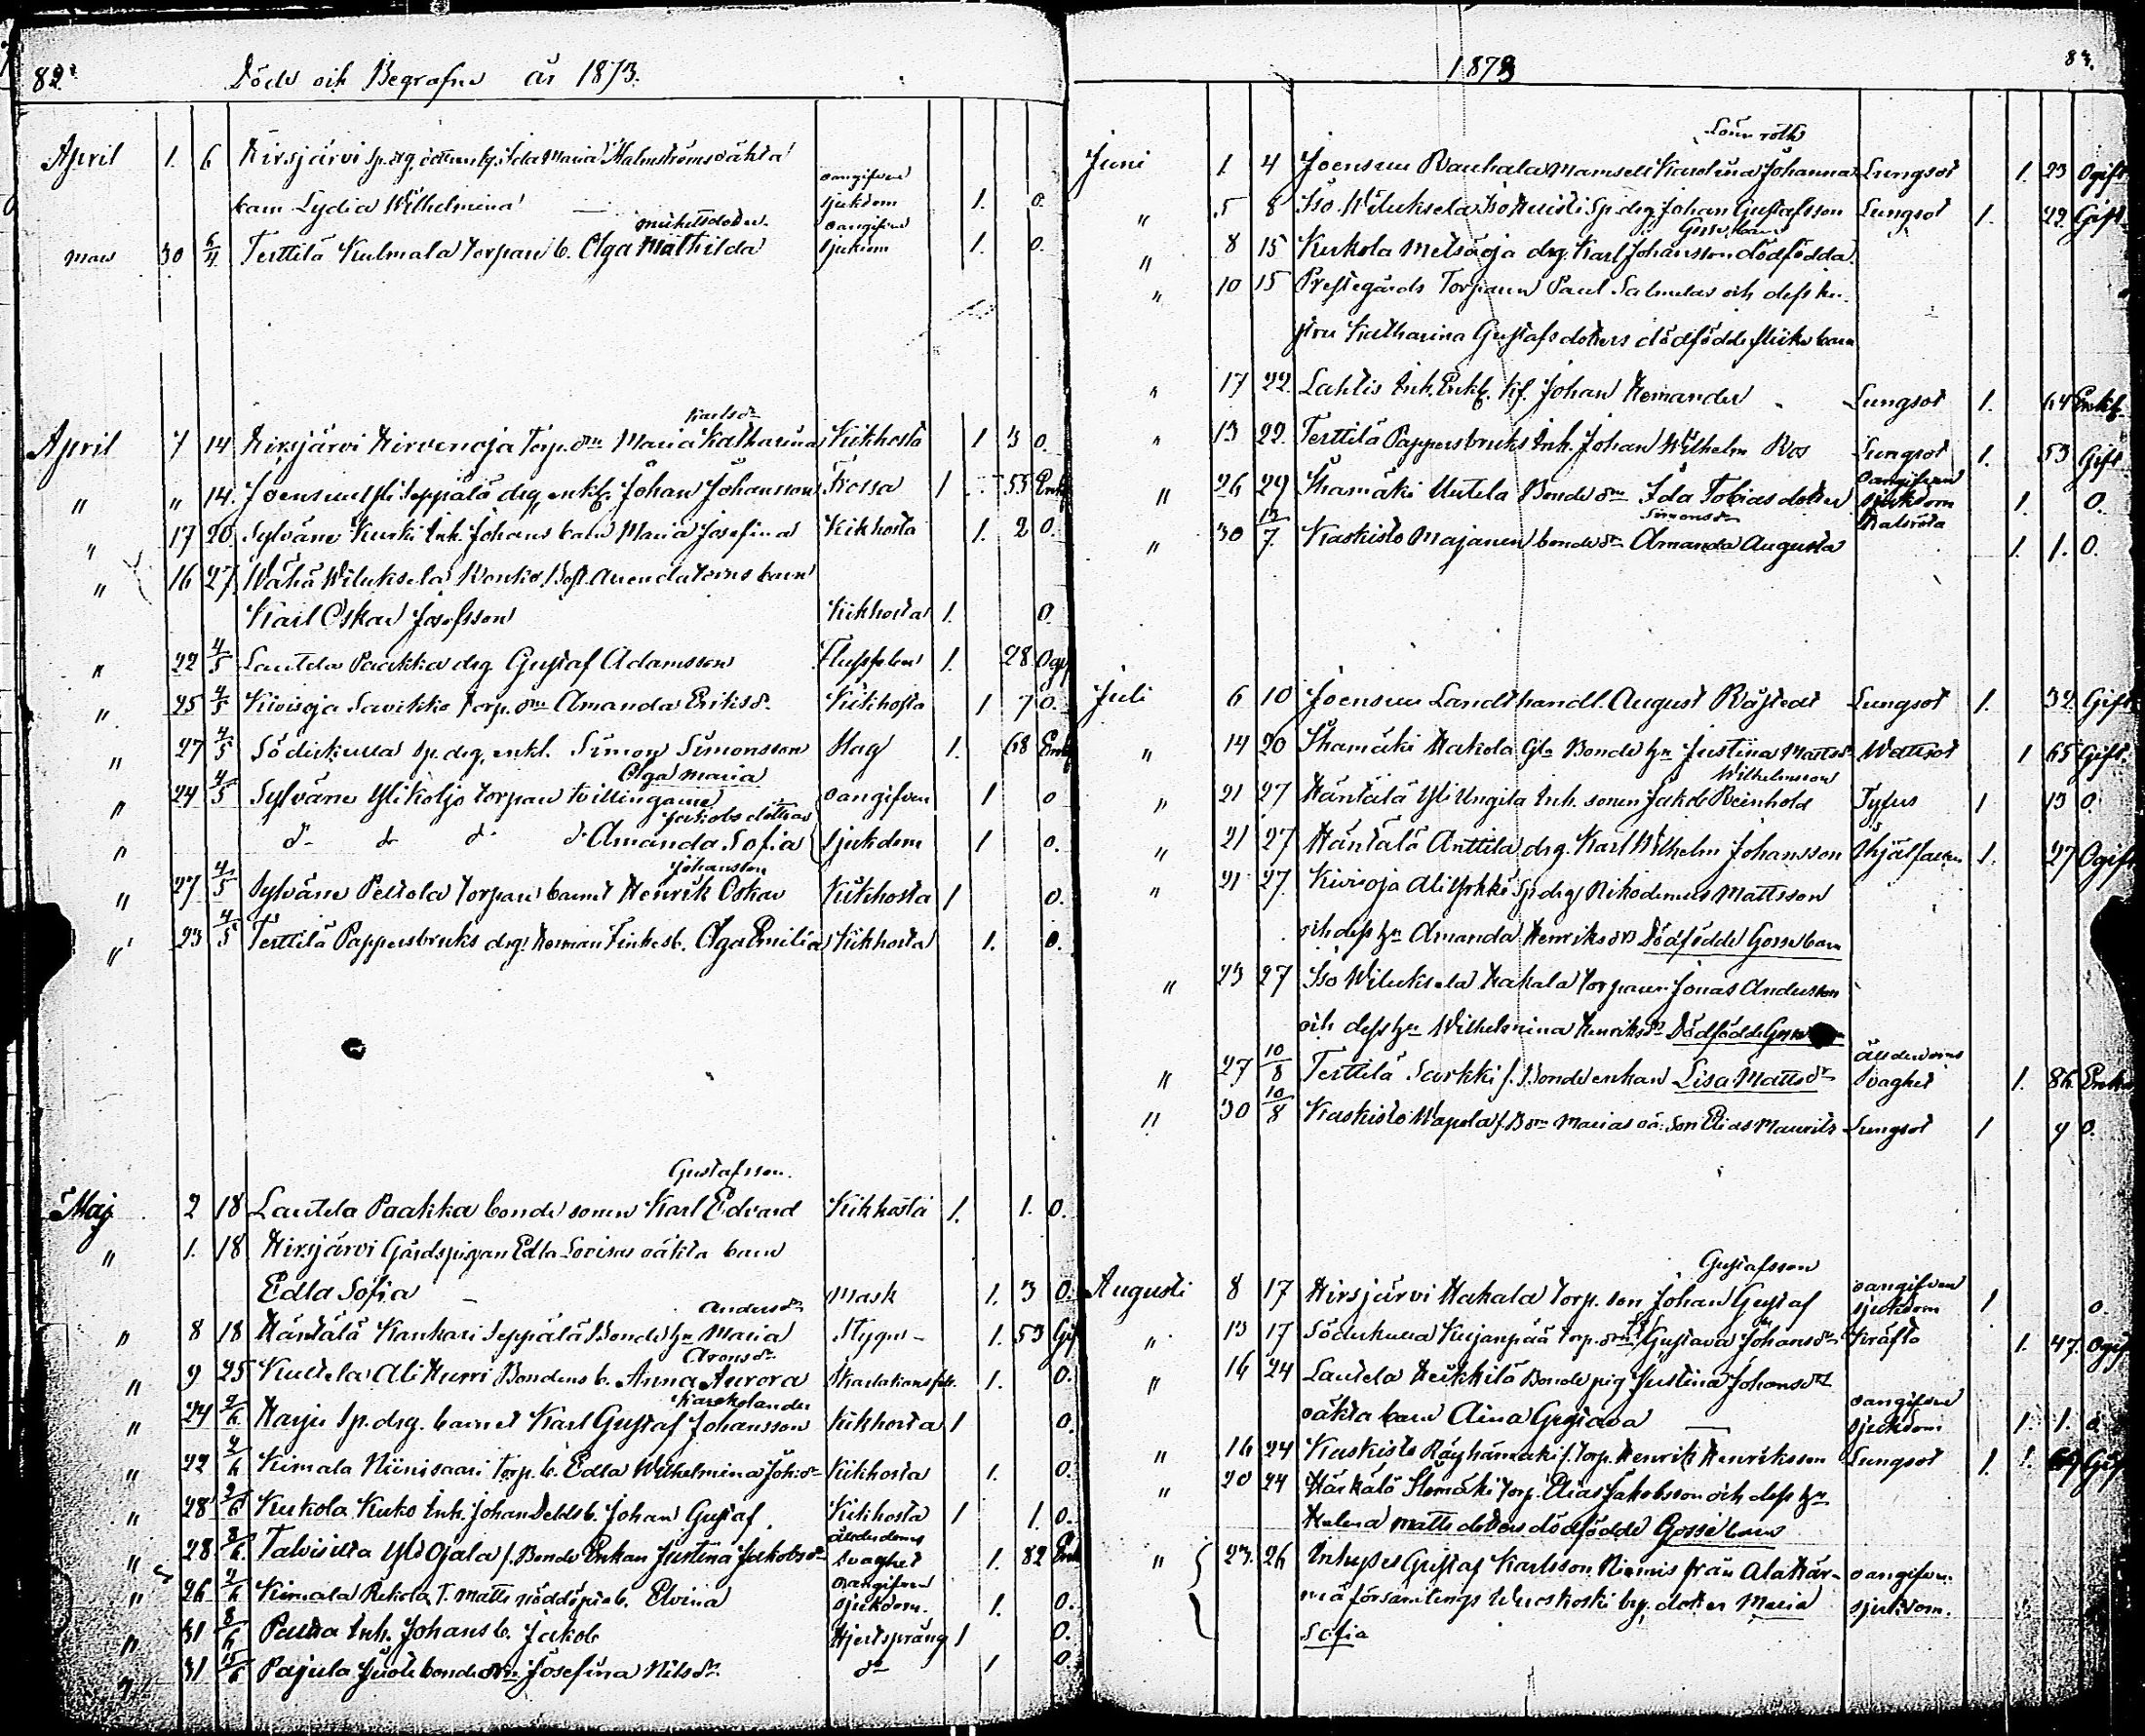 82.
Döde och Begrafne år 1873.
April 1. 6 Hirsjärvi Sp. drg. dottern Ida Maria Malmströms oäkta
barn Lydia Wilhelmina — oangifven sjukdom 1. 0.
Mars 30 6/4 Terttilä Kulmala torpare b. Olga Mathilda Mickelsdotter oangifven sjukdom 1. 0.
April 7 14 Hirsjärvi Hirvenoja Torp. dr Maria Katharina Karlsdr Kikhosta 1 3 0.
" " 14. Joensuu Yli Seppälä drg. enkl. Johan Johansson Frossa 1 55 Enkl
" 17 20. Sylvänä Kurki Inh. Johans barn Maria Josefina Kikhosta 1. 2 0.
" 16 27. Wähä Wiluksela Wonkio Bost. arendatorns barn
Karl Oskar Josefsson Kikhosta 1. 0
" 22 4/5 Lautela Paakka drg Gustaf Adamsson 1. 28 Ogf
" 25 4/5 Kivisoja Savikko torp. dr Amanda Eriksd. Kikhosta 1 7 0.
" 27 4/5 Söderkulla Sp. drg. enkl. Simon Simonsson Slag 1. 68 Enkl
" 24 4/5 Sylvänä Ylikoljo torpare tvillingarne Olga Maria oangifven 1 0
" do do do do Amanda Sofia Jakobs döttrar sjukdom 1 0.
" 27 4/5 Sylvänä Peltola torpare barnet Henrik Oskar Johansson Kikhosta 1 0.
" 23 4/5 Terttilä Pappersbruks drg. Herman Finkes b. Olga Emilia Kikhosta 1. 0.
Maj 2 18 Lautela Paakka bonde sonen Karl Edvard Gustafsson Kikhosta 1. 1. 0.
" 1. 18 Hirsjärvi Gårdspigan Edla Lovisas oäkta barn
Edla Sofia — Mask 1. 3 0.
" 8 18 Häntälä Kankari Seppälä Bonde hu Maria Andersdr Stygn — 1. 53 Gift
" 9 25 Kultela Ali Hurri Bondens b. Anna Aurora Aronsdr 1. 0.
" 24 2/6 Harju Sp. drg. barnet Karl Gustaf Johansson Kikhosta 1 0.
" 22 2/6 Kimala Niinisaari torp. b. Edla Wilhelmina Joh.dr Kikhosta 1. 0.
" 28 2/6 Kukola Kuko Inh. Johan b. Johan Gustaf Kikhosta 1 1. 0.
" 28 8/6 Talvisilta Yli Ojala f. Bonde Enkan Justina Jakobsdr ålderdoms svaghet 1. 82 Enk
" 26 2/6 Kimala Rekola T. Matts nöddöpta b. Elvina oangifven sjukdom. 1. 0.
" 31 8/6 Inh. Johans b. Jakob Hjertspräng 1 0.
" 31 15/6 Pajula bonde dr Josefina Nilsdr do 1 0.
1873
83.
Juni 1. 4 Joensuu Rauhala Mamsell Karolina Johanna Lönnroth Lungsot 1. 23 Ogift
" 5 8 Iso Wiluksela Sp. drg Johan Gustafsson Lungsot 1. 22. Gift
" 8 15 Kukola Metsäoja drg. Karl Johansson dödfödda. Gosse barn
" 10 15 Prestegårds Torparen Paul Salmelas och dess hu-
stru Katharina Gustafsdotters dödfödde flicke barn
" 17 22. Lahtis Inh. Enkl. Kf. Johan Hemander Lungsot 1. 64 Enkl.
" 13 22. Terttilä Pappersbruks Inh. Johan Wilhelm Ros Lungsot 1. 53 Gift
" 26 29 Ihamäki Uutela Bonde dr Ida Tobiasdotter oangifven sjukdom 1. 0.
" 30 13/7 Kaskisto Majanen bonde dr Amanda Augusta Simonsdr 1. 1. 0.
Juli 6 10 Joensuu Landthandl. August Råstedt Lungsot 1. 32. Gift
" 14 20 Ihamäki Hakola Gla Bonde hu Justina Mattsdr Wattsot 1 65 Gift.
" 21 27 Häntälä Yli Ungila Inh. sonen Jakob Reinhold Wilhelmsson Tyfus 1 13 0.
" 21 27 Häntälä Anttila drg. Karl Wilhelm Johansson Ihjälfallen 1. 27 Ogift
" 21 27. Kivisoja Ali Yrkkö Sp. drg Nikodemus Mattsson
och dess hu Amanda Henriksdrs Dödfödde Gosse barn
" 23 27 Iso Wiluksela Hakala torparen Jonas Andersson
och dess hu Wilhelmina Henriksdr Dödfödde Gosse
" 27 10/8 Terttilä Sarkki f. Bonde enkan Lisa Mattsdr ålderdoms svaghet 1. 86. Enka
" 30 10/8 Kaskisto Wapola f. B.dr Marias oä. son Elias Maurits Lungsot 1 9 0.
Augusti 8 17 Hirsjärvi Hakala torp. son Johan Gustaf Gustafsson oangifven sjukdom 1 0.
" 13 17 Söderkulla Kujanpää torp. dr Gustava Johansdr Kräfta 1. 47. Ogift
" 16 24 Lautela Heikkilä Bonde pig Justina Johansdrs
oäkta barn Aina Gustava — oangifven sjukdom 1. 1. 0.
" 16 24 Kaskisto Räyhämäki f. torp. Henrik Henriksson Lungsot 1. 69 Gift
" 20 24 Härkälä Isomäki torp. Elias Jakobsson och dess hu
Helena Mattsdotters dödfödde Gosse barn
" 23. 26 Inhyses Gustaf Karlsson Niemis från Alahär-
mä församlings Wuoskoski by, dotter Maria oangifven sjukdom.
Sofia